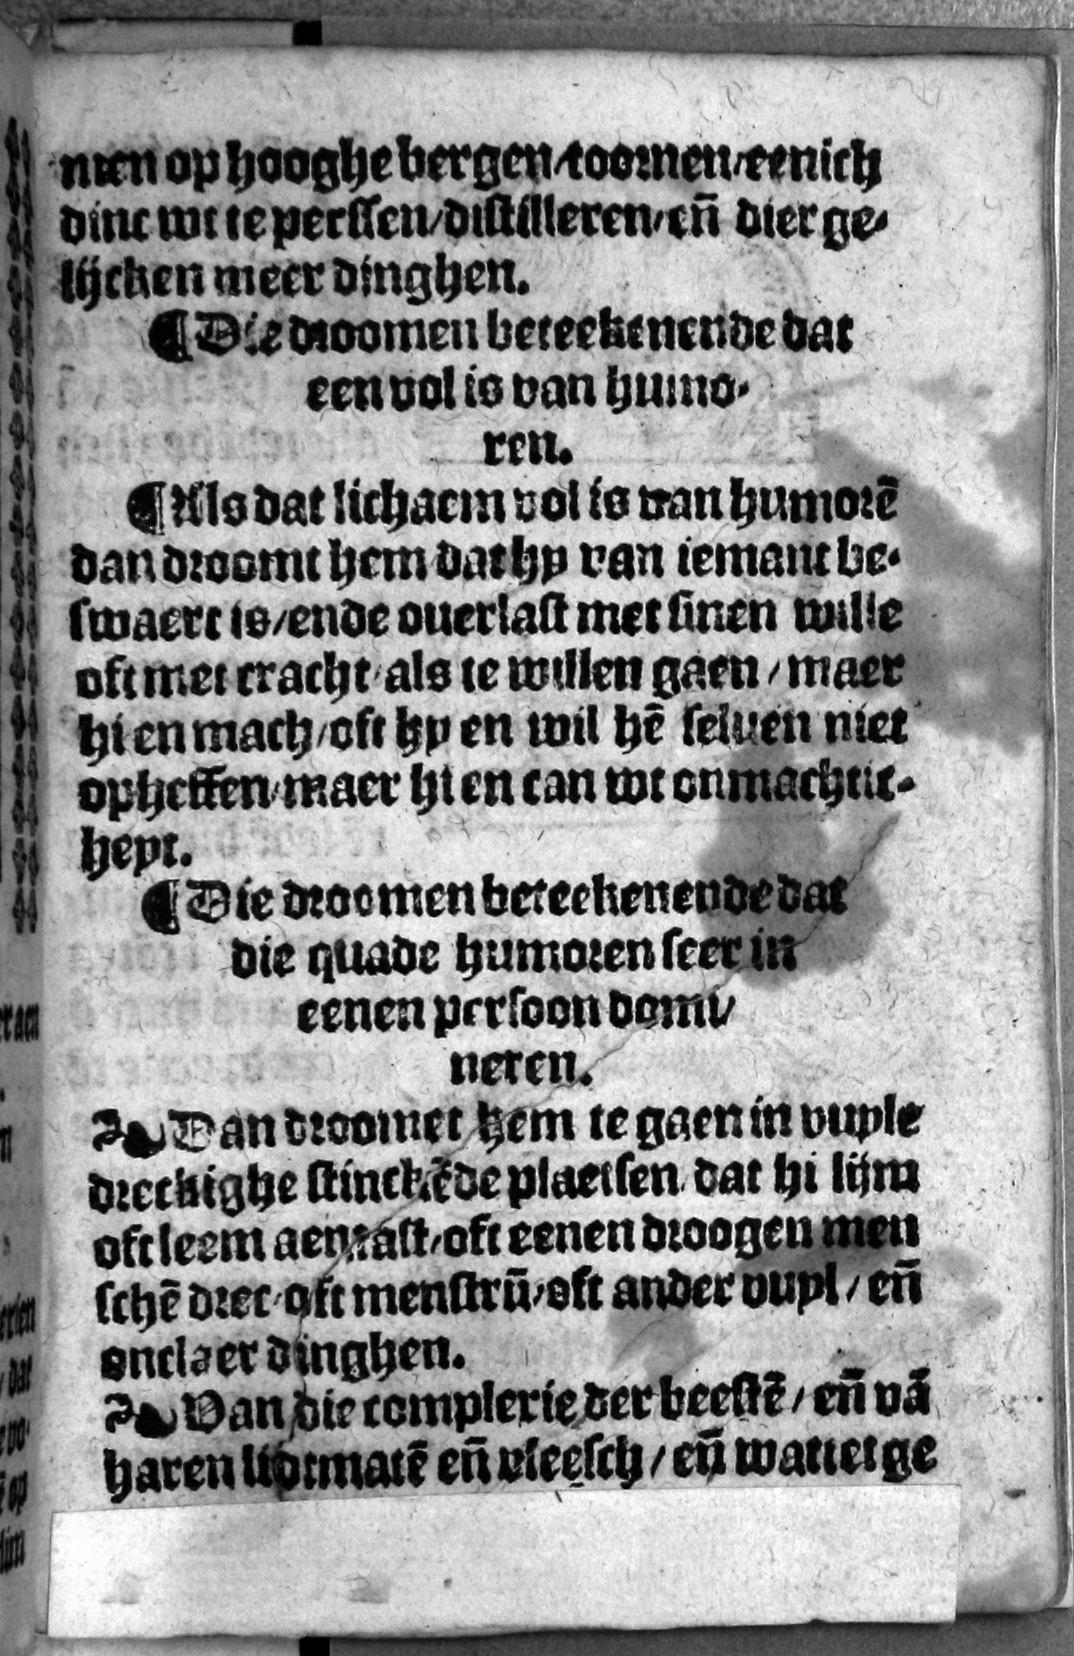 men op hooghe bergen/toornen/eenich
dinc wt te perssen/distilleren/en̄ dier ge-
lijcken meer dinghen.
¶ Die droomen beteekenende dat
een vol is van humo-
ren.
¶ Als dat lichaem vol is van humorē
dan droomt hem dat hy van iemant be-
swaert is/ende ouerlast met sinen wille
oft met cracht/als te willen gaen/maer
hi en mach/oft hy en wil hē seluen niet
opheffen/maer hi en can wt onmachtic-
heyt.
¶ Die droomen beteekenende dat
die quade humoren seer in
eenen persoon domi/
neren.
Dan droomet hem te gaen in vuyle
dreckighe stinckēde plaetsen/dat hi lijm
oft leem aentast/oft eenen droogen men
schē drec/oft menstrū/oft ander vuyl/en̄
onclaer dinghen.
Van die complexie der beestē/en̄ vā
haren lidtmatē en̄ vleesch/en̄ wattet ge